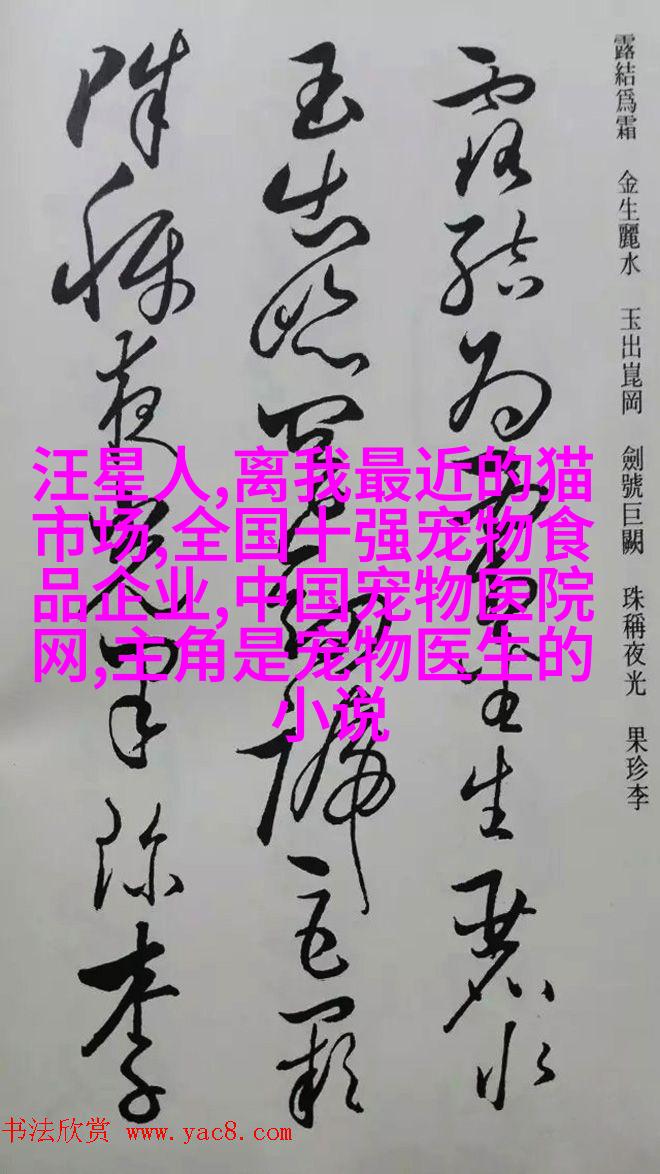 露結爲霜 金生麗水 玉出崑岡 劍號巨闕 珠稱夜光 果珍李
露結為霜金生麗水
玉出崑岡劍號巨闕
珠稱夜光果珍李
汪星人,离我最近的猫
市场,全国十强宠物食
品企业,中国宠物医院
网,主角是宠物医生的
小说
书法欣赏 www.yac8.com